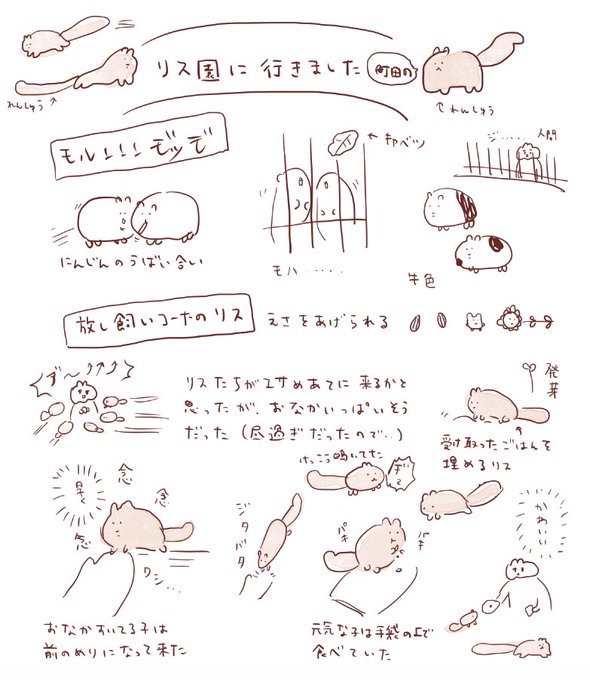 リス園に行きました
町田の
れんしゅう
れんしゅう
モル!!!デッデ
キャベツ
ジ……
人間
にんじんのうばい合い
モハ……
牛色
放し飼いコーナのリス
えさをあげられる
リスたちがエサめあてに来るかと
思ったが、おなかいっぱいそう
だった(昼過ぎだったので…)
けっこう鳴いてた
発芽
受け取ったごはんを
埋めるリス
念
念
念
早く
ワシ…
ジタ
バタ
バキ
バキ
かわいい
おなかすいてる子は
前のめりになって来た
元気な子は手袋の上で
食べていた